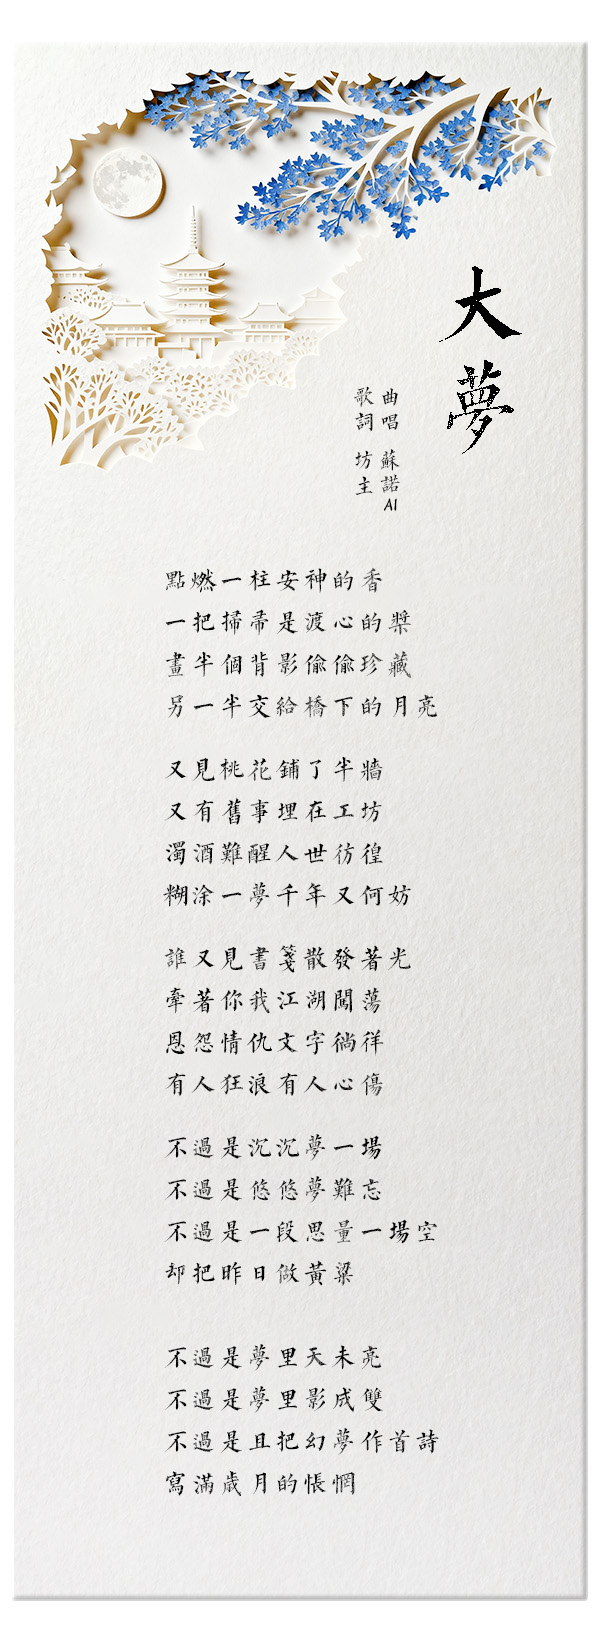 大夢
曲唱 蘇諾AI
歌詞 坊主
點燃一柱安神的香
一把掃帚是渡心的槳
畫半個背影偷偷珍藏
另一半交給橋下的月亮
又見桃花鋪了半牆
又有舊事埋在工坊
濁酒難醒人世彷徨
糊涂一夢千年又何妨
誰又見書箋散發著光
牽著你我江湖闖蕩
恩怨情仇文字徜徉
有人狂浪有人心傷
不過是沉沉夢一場
不過是悠悠夢難忘
不過是一段思量一場空
却把昨日做黃粱
不過是夢里天未亮
不過是夢里影成雙
不過是且把幻夢作首詩
寫滿歲月的悵惘